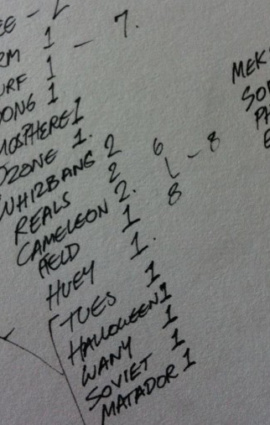 RM 1 - 7.
URF 1
ONG 1
MOSPHERE 1
OZONE 1.
WHIZBANG 2 6
REALS 2 - 8
CAMELEON 2. 8
AELD 1
HUEY 1.
TUES 1
HALLOWEEN 1
WANY 1
SOVIET 1
MATADOR 1
MEK
SO